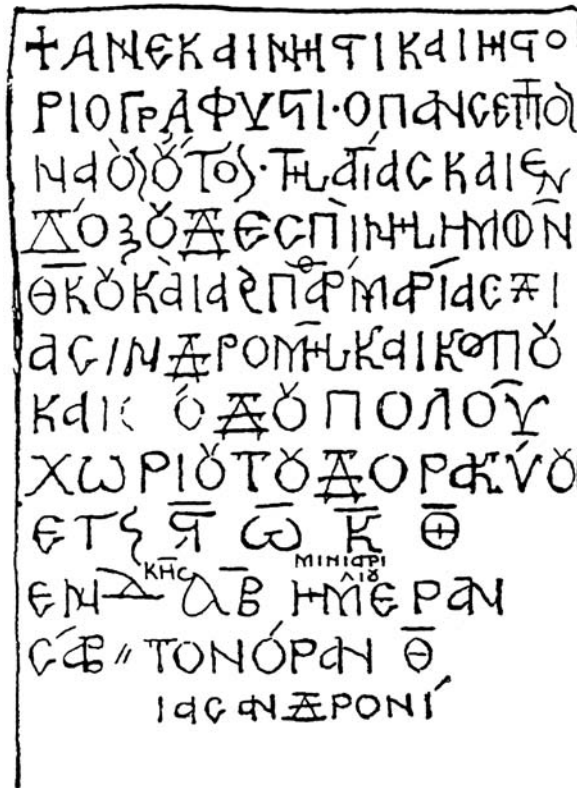 +ΑΝΕΚΑΙΝΗϚΙ ΚΑΙ ΗϚΟ
ΡΙΟΓΡΑΦΥϚΙ·Ο ΠΑΝϹΕΠΤΟϹ
ΝΑΟϹ ΟΥΤΟϹ·ΤΗϹ ΑΓΙΑϹ ΚΑΙ ΕΝ
ΔΟΞΟΥ ΔΕϹΠΙΝΗϹ ΗΜΟΝ
ΘΚΟΥ ΚΑΙ ΑΕΙΠΑΡΘ ΜΑΡΙΑϹ ΕΔΙ
ΑϹΙΝΔΡΟΜΗϹ ΚΑΙ ΚΟΠΟΥ
ΚΑΙ ΟΔΟΥ ΠΟΛΟΥ
ΧΩΡΙΟΥ ΤΟΥ ΔΟΡΑΚΥΟΥ
ΕΤϚ Ϛ Ω Κ Θ
ΕΝΔ ΚΗϹ ΑΒ ΜΙΝΙ ΑΡΙΛΙΟΥ ΗΜΕΡΑΝ
ϹΑΒ // ΤΟΝ ΟΡΑΝ Θ
ΙΑϹ ΑΝΔΡΟΝΙ